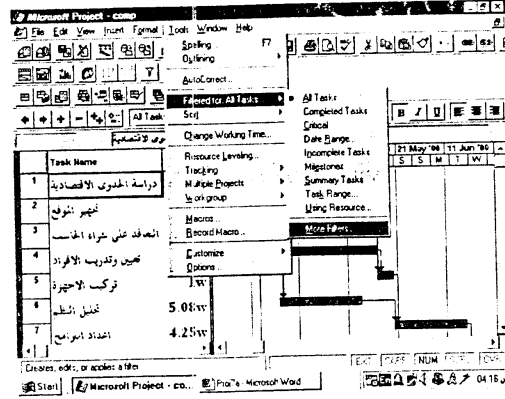 Microsoft Project - comp
File Edit View Insert Format Tools Window Help
Spelling... F7
Outlining
AutoCorrect...
Filtered for: All Tasks
Sort
Change Working Time...
Resource Leveling...
Tracking
Multiple Projects
Workgroup
Macros...
Record Macro...
Customize
Options...
All Tasks
Completed Tasks
Critical
Date Range...
Incomplete Tasks
Milestones
Summary Tasks
Task Range...
Using Resource...
More Filters...
All Task
B I U
21 May '00 11 Jun '00
S S M T W
Task Name
1 دراسة الجدوى الاقتصادية
2 تجهيز الموقع
3 التعاقد على شراء الحاسب
4 تعيين وتدريب الافراد
5 تركيب الاجهزة 1w
6 تحليل النظم 5.08w
7 اعداد البرامج 4.25w
Creates, edits, or applies a filter
EXT CAPS NUM OVR
Start Microsoft Project - co... Microsoft Word 04:16